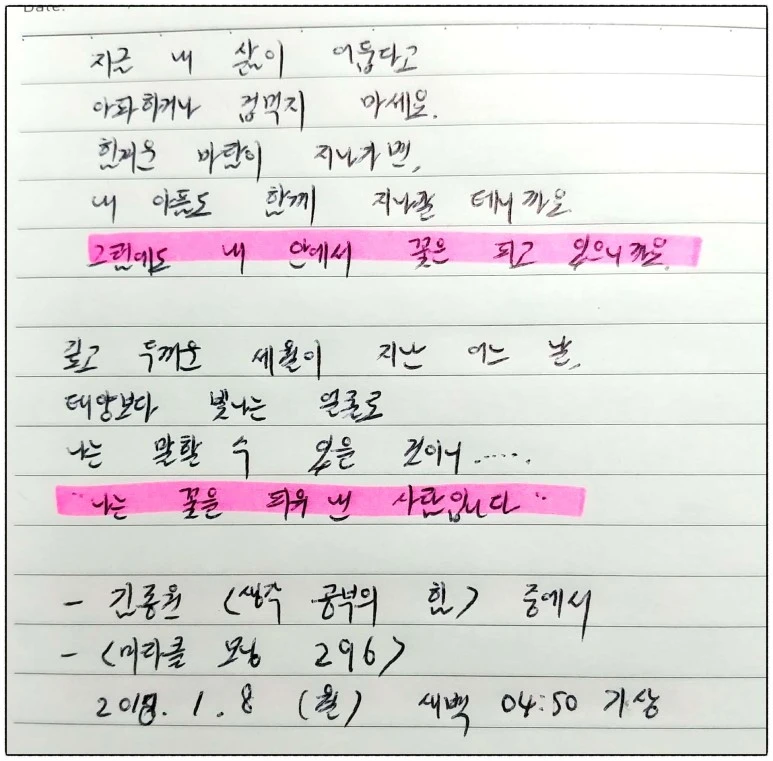 Date.
지금 내 삶이 어둡다고
아파하거나 겁먹지 마세요.
힘겨운 바람이 지나가면,
내 아픔도 함께 지나갈 테니까요.
그럼에도 내 안에서 꽃은 피고 있으니까요.
길고 두꺼운 세월이 지난 어느 날,
태양보다 빛나는 얼굴로
나는 말할 수 있을 것이니......
"나는 꽃을 피워 낸 사람입니다"
- 김종원 <생각 공부의 힘> 중에서
- <미라클 모닝 296>
2018. 1. 8 (월) 새벽 04:50 기상